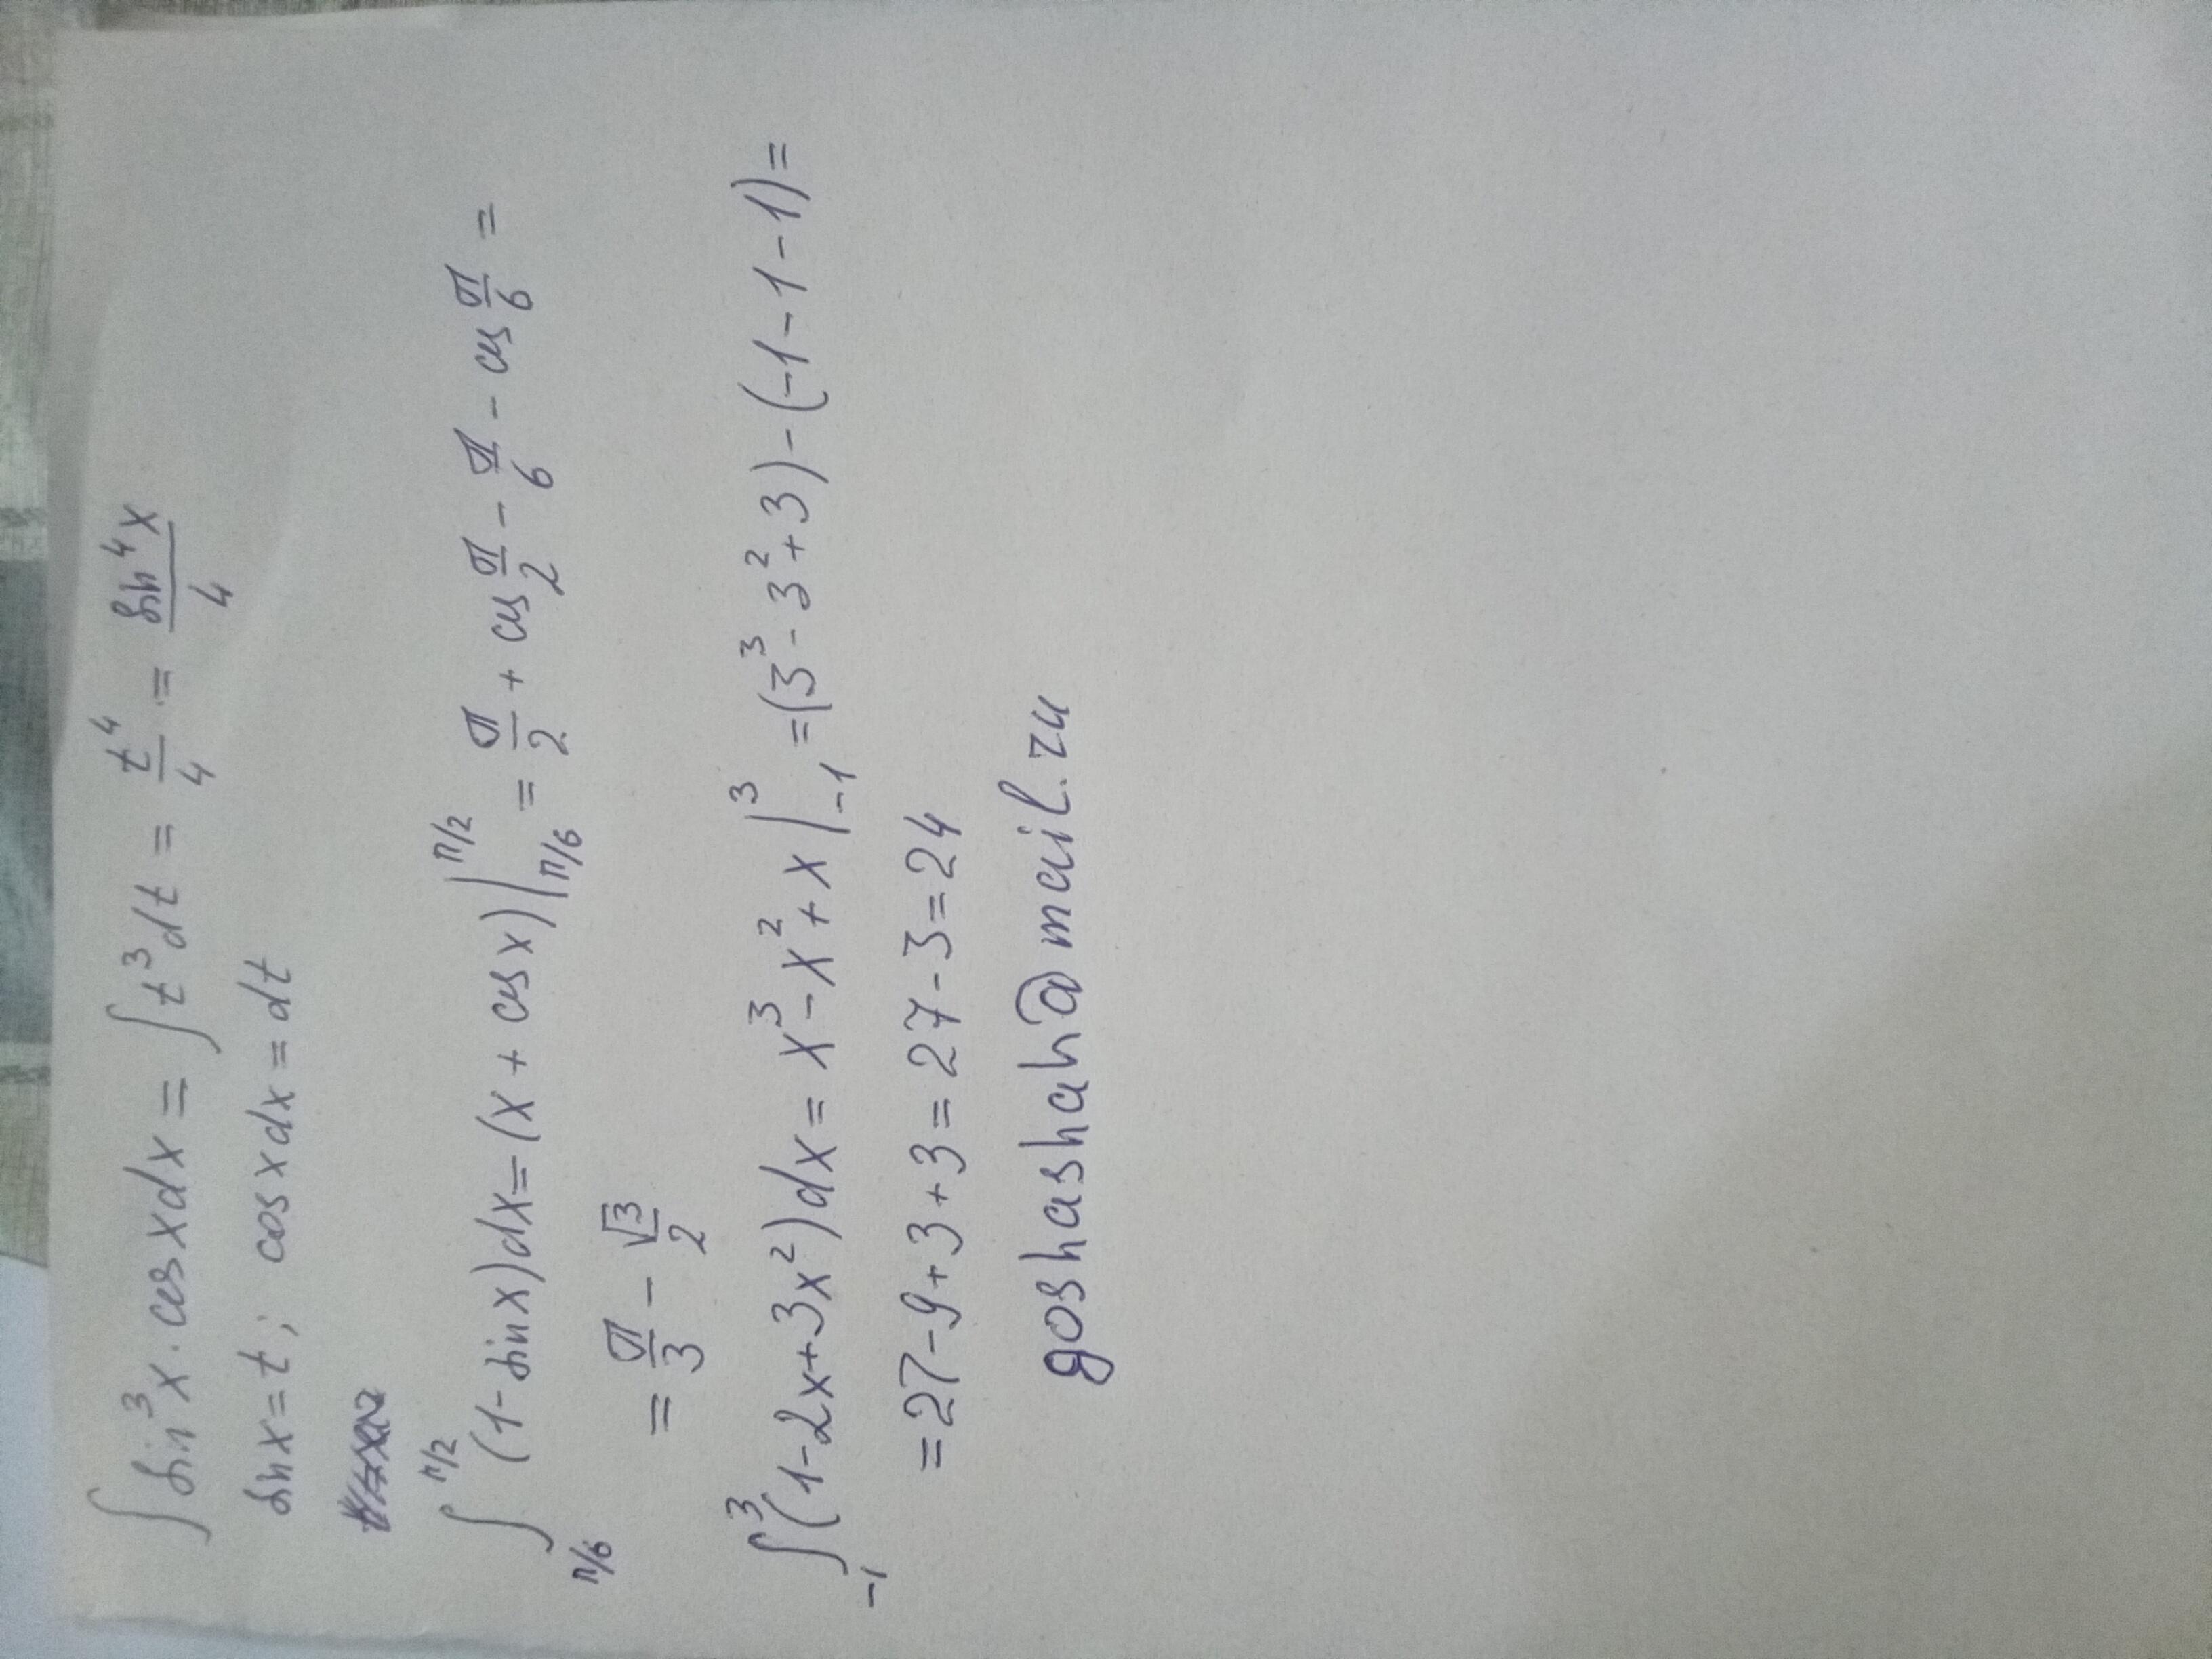 ∫ sin³x · cosxdx = ∫t³dt = t⁴/4 = sin⁴x/4
sinx = t; cosxdx = dt
∫_{π/6}^{π/2} (1-sinx)dx = (x + cosx)|_{π/6}^{π/2} = π/2 + cos π/2 - π/6 - cos π/6 =
= π/3 - √3/2
∫_{-1}^{3} (1-2x+3x²)dx = x³-x²+x|_{-1}^{3} = (3³-3²+3)-(-1-1-1)=
=27-9+3+3=27-3=24
goshashah@mail.ru